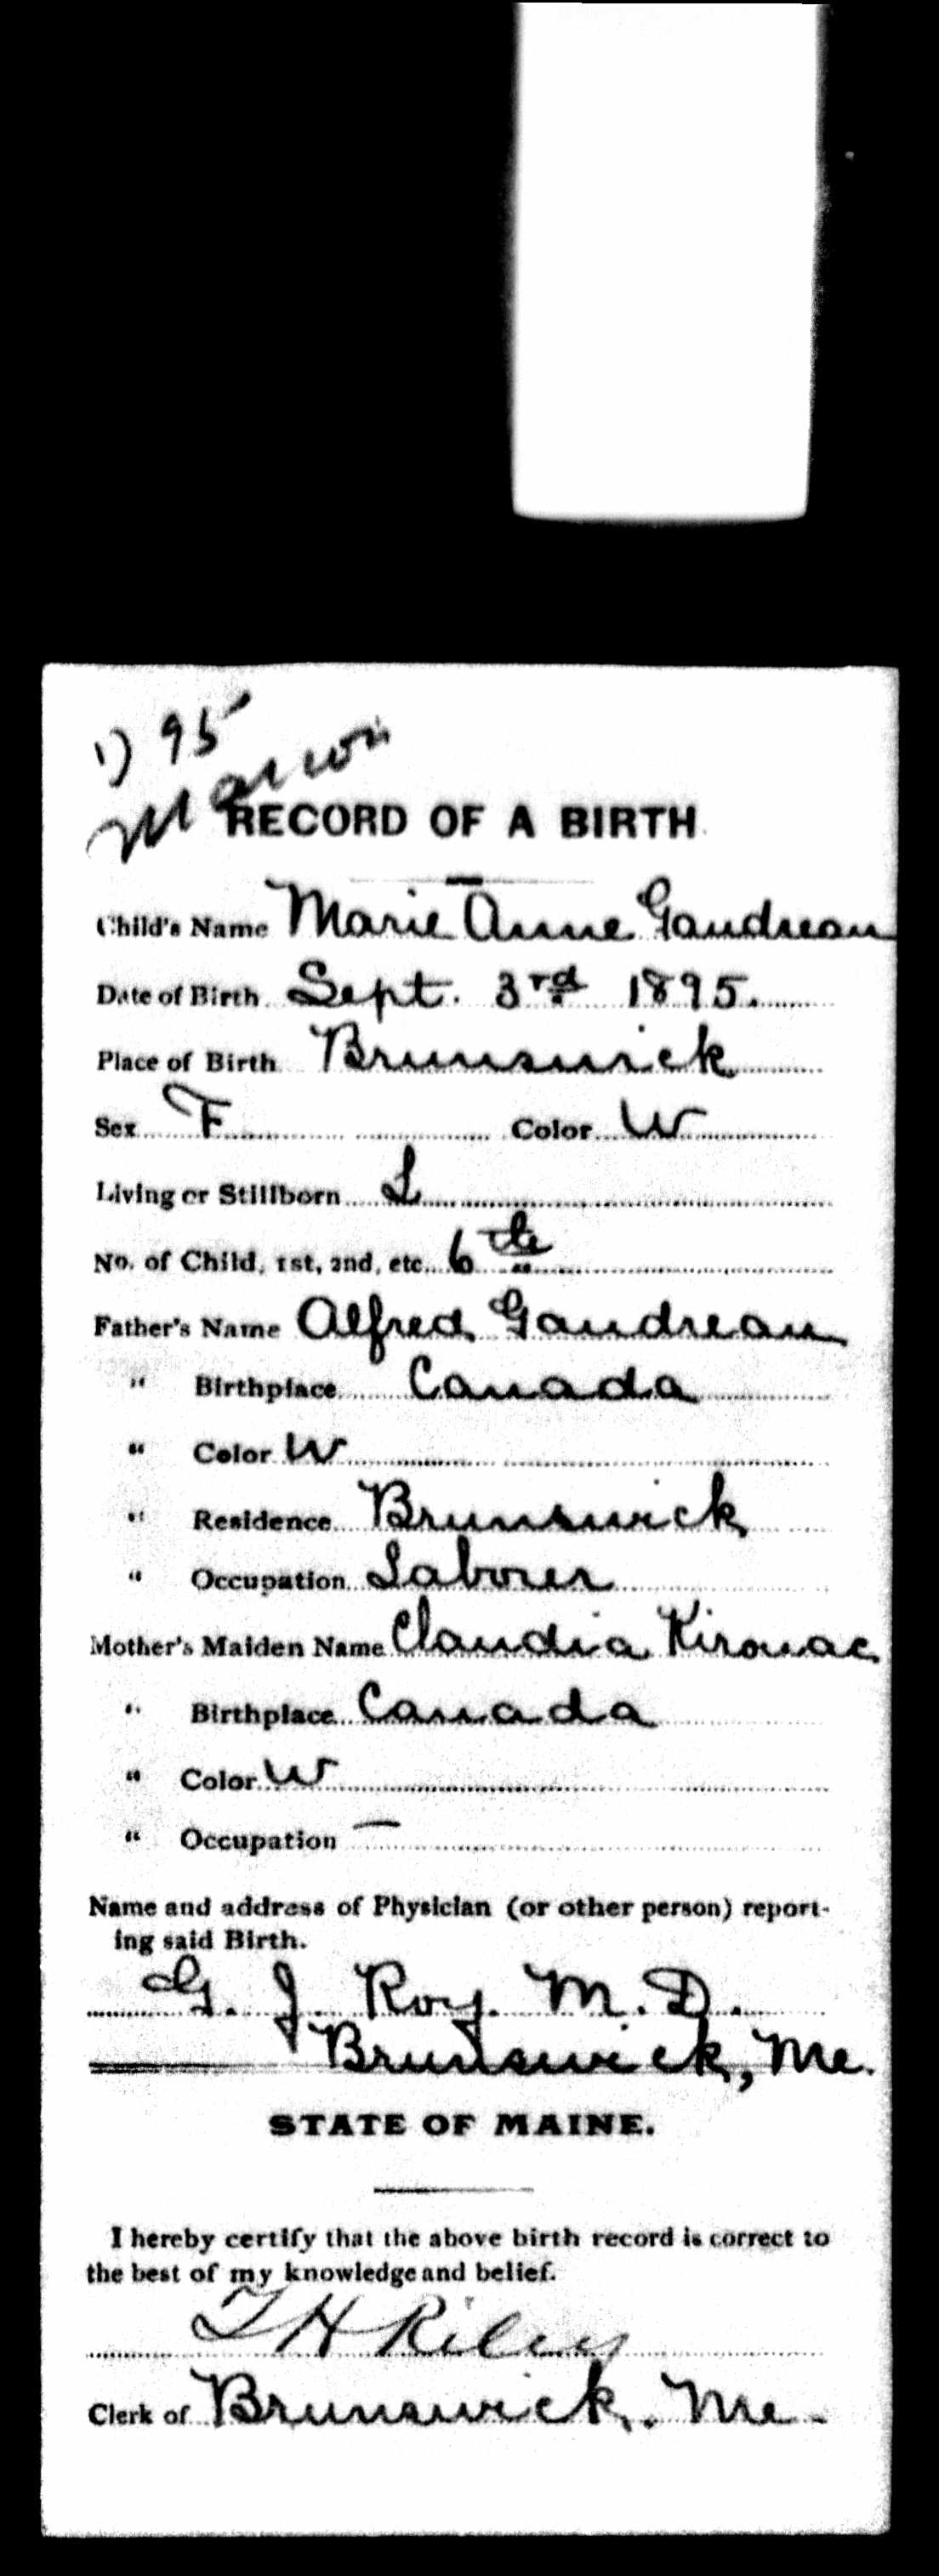 1) 95
RECORD OF A BIRTH
Child's Name Marie Anne Gaudreau
Date of Birth Sept. 3rd 1895.
Place of Birth Brunswick
Sex F Color W
Living or Stillborn L
No. of Child, 1st, 2nd, etc. 6th
Father's Name Alfred Gaudreau
" Birthplace Canada
" Color W
" Residence Brunswick
" Occupation Laborer
Mother's Maiden Name Claudia Kirouac
" Birthplace Canada
" Color W
" Occupation —
Name and address of Physician (or other person) report-
ing said Birth.
G. J. Roy. M. D.
Brunswick, Me.
STATE OF MAINE.
I hereby certify that the above birth record is correct to
the best of my knowledge and belief.
Riley
Clerk of Brunswick. Me.